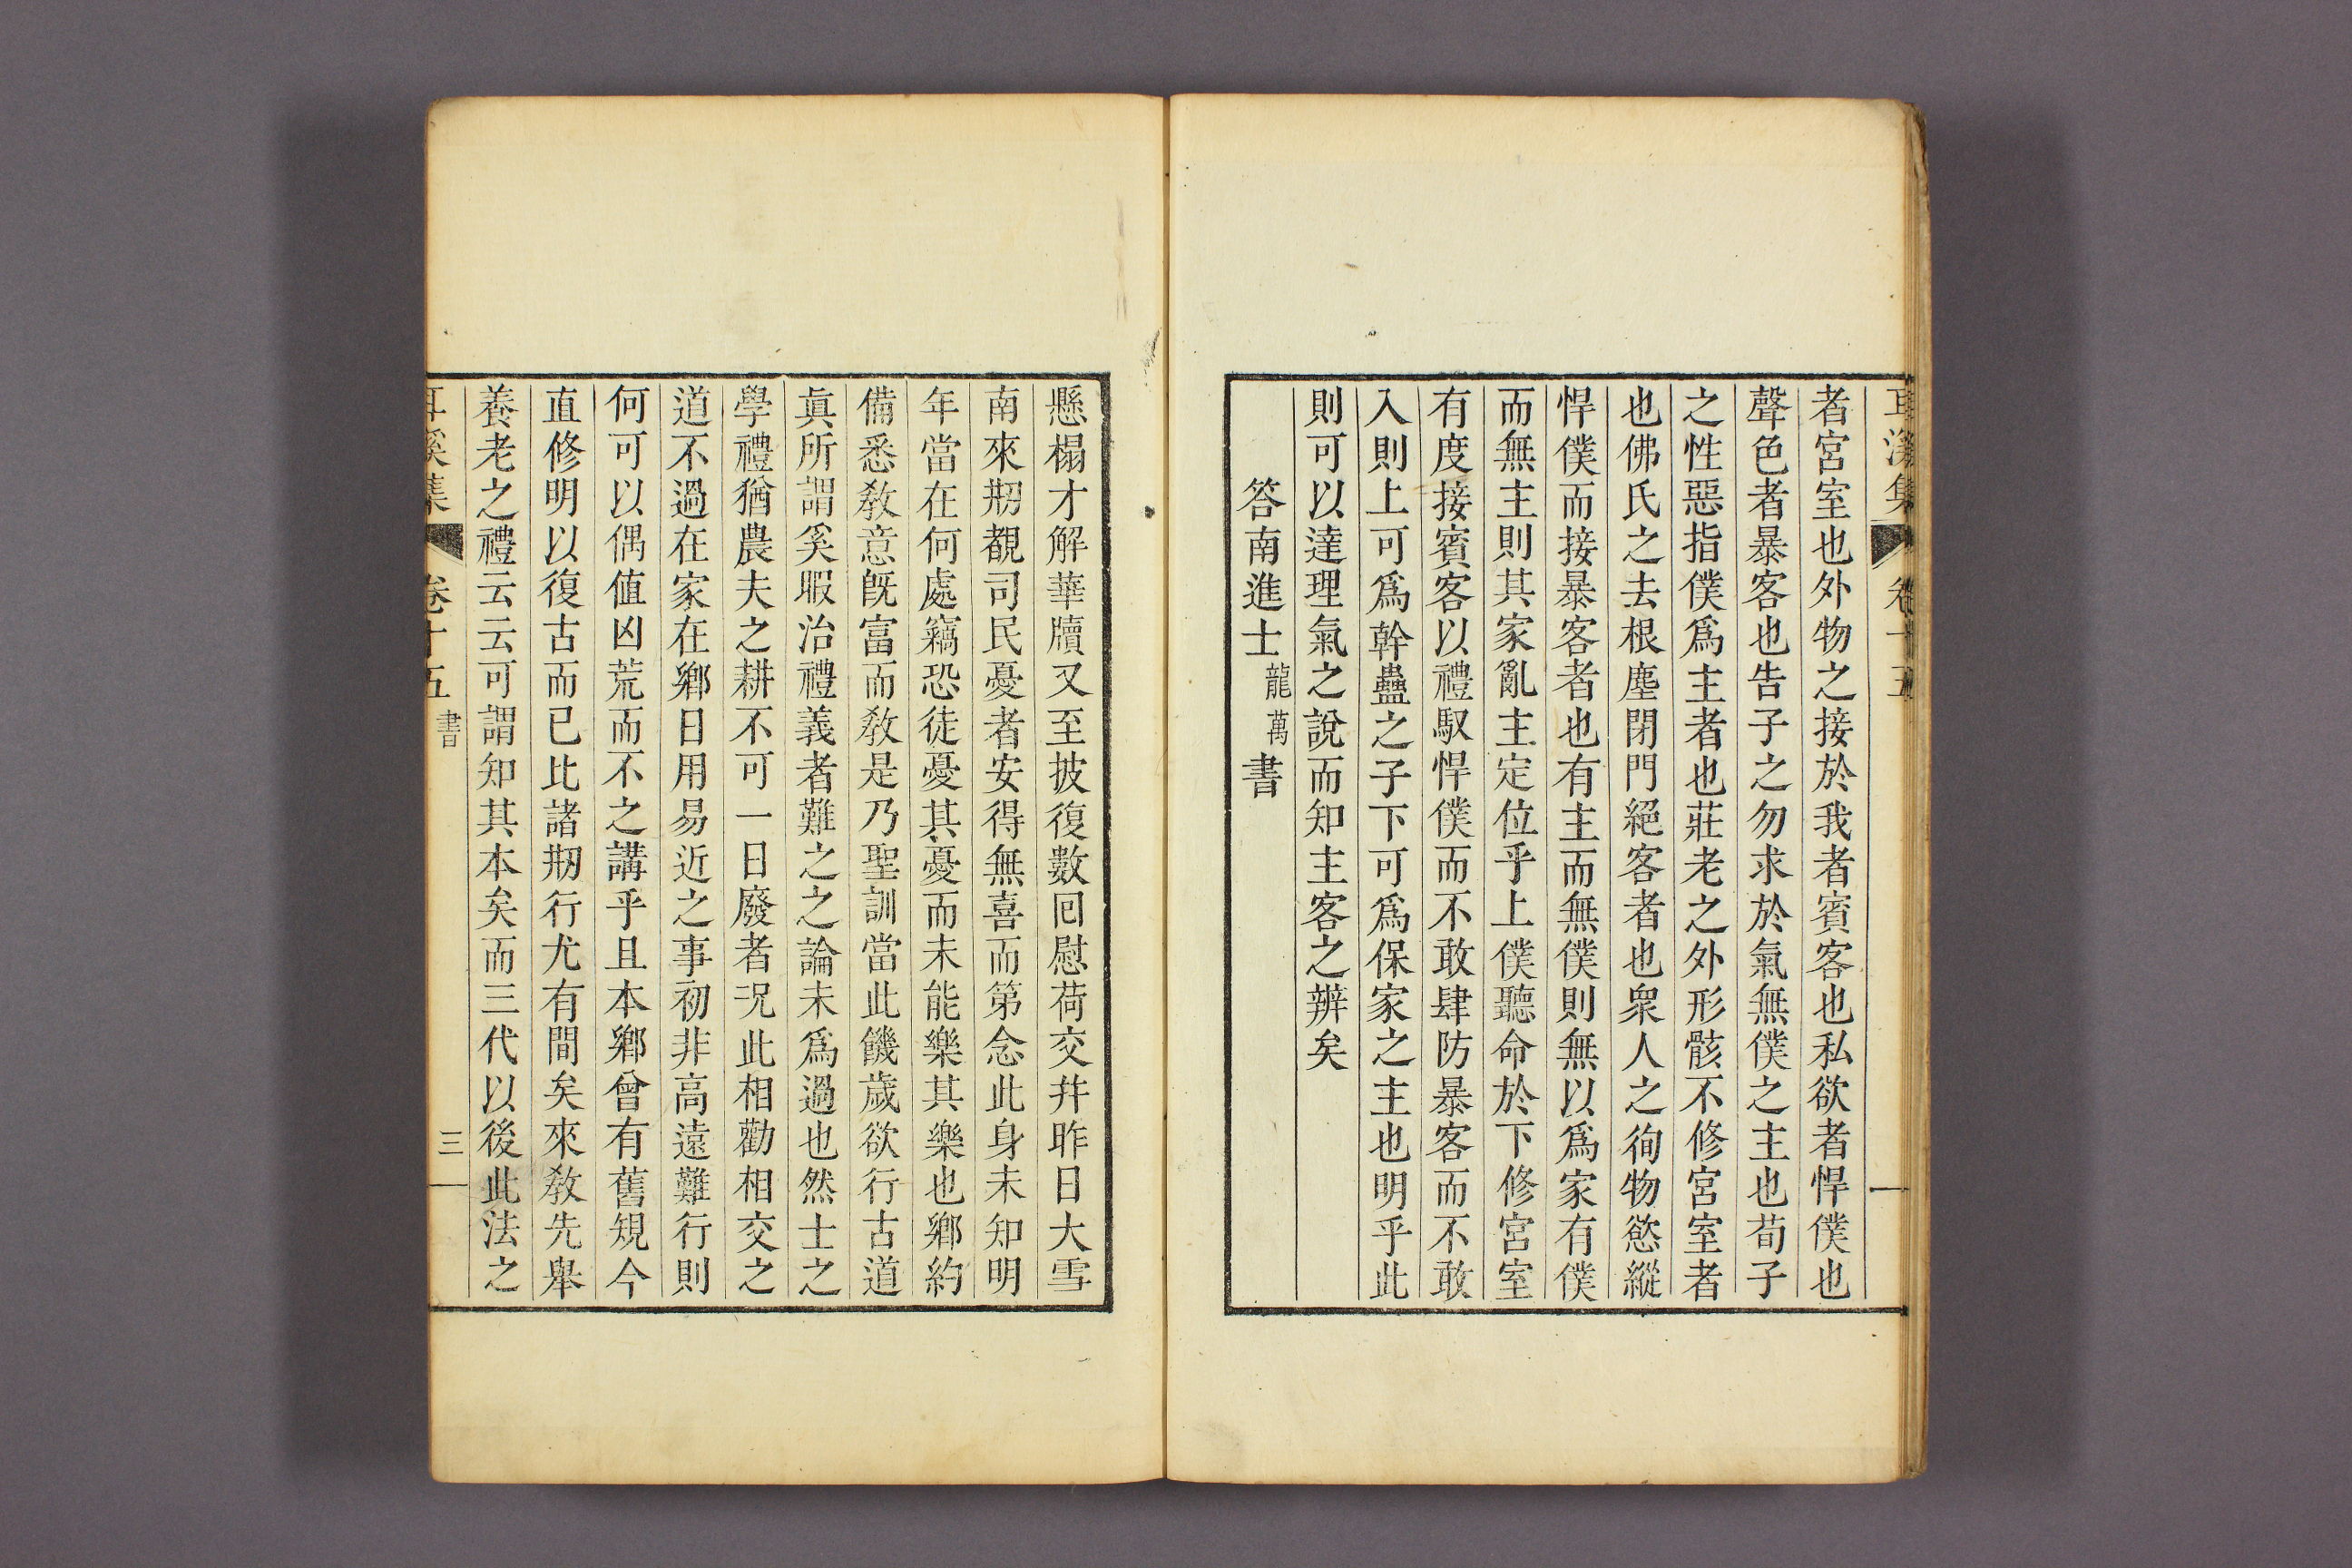 耳溪集 卷十五
者宮室也外物之接於我者賓客也私欲者悍僕也
聲色者暴客也告子之勿求於氣無僕之主也荀子
之性惡指僕爲主者也莊老之外形骸不修宮室者
也佛氏之去根塵閉門絕客者也衆人之徇物慾縱
悍僕而接暴客者也有主而無僕則無以爲家有僕
而無主則其家亂主定位乎上僕聽命於下修宮室
有度接賓客以禮馭悍僕而不敢肆防暴客而不敢
入則上可爲幹蠱之子下可爲保家之主也明乎此
則可以達理氣之說而知主客之辨矣
答南進士龍萬書
懸榻才解華牘又至披復數回慰荷交幷昨日大雪
南來刱覩司民憂者安得無喜而第念此身未知明
年當在何處竊恐徒憂其憂而未能樂其樂也鄕約
備悉敎意旣富而敎是乃聖訓當此饑歲欲行古道
眞所謂奚暇治禮義者難之之論未爲過也然士之
學禮猶農夫之耕不可一日廢者况此相勸相交之
道不過在家在鄕日用易近之事初非高遠難行則
何可以偶值凶荒而不之講乎且本鄕曾有舊規今
直修明以復古而已比諸刱行尤有間矣來敎先舉
養老之禮云云可謂知其本矣而三代以後此法之
耳溪集 卷十五 書 三